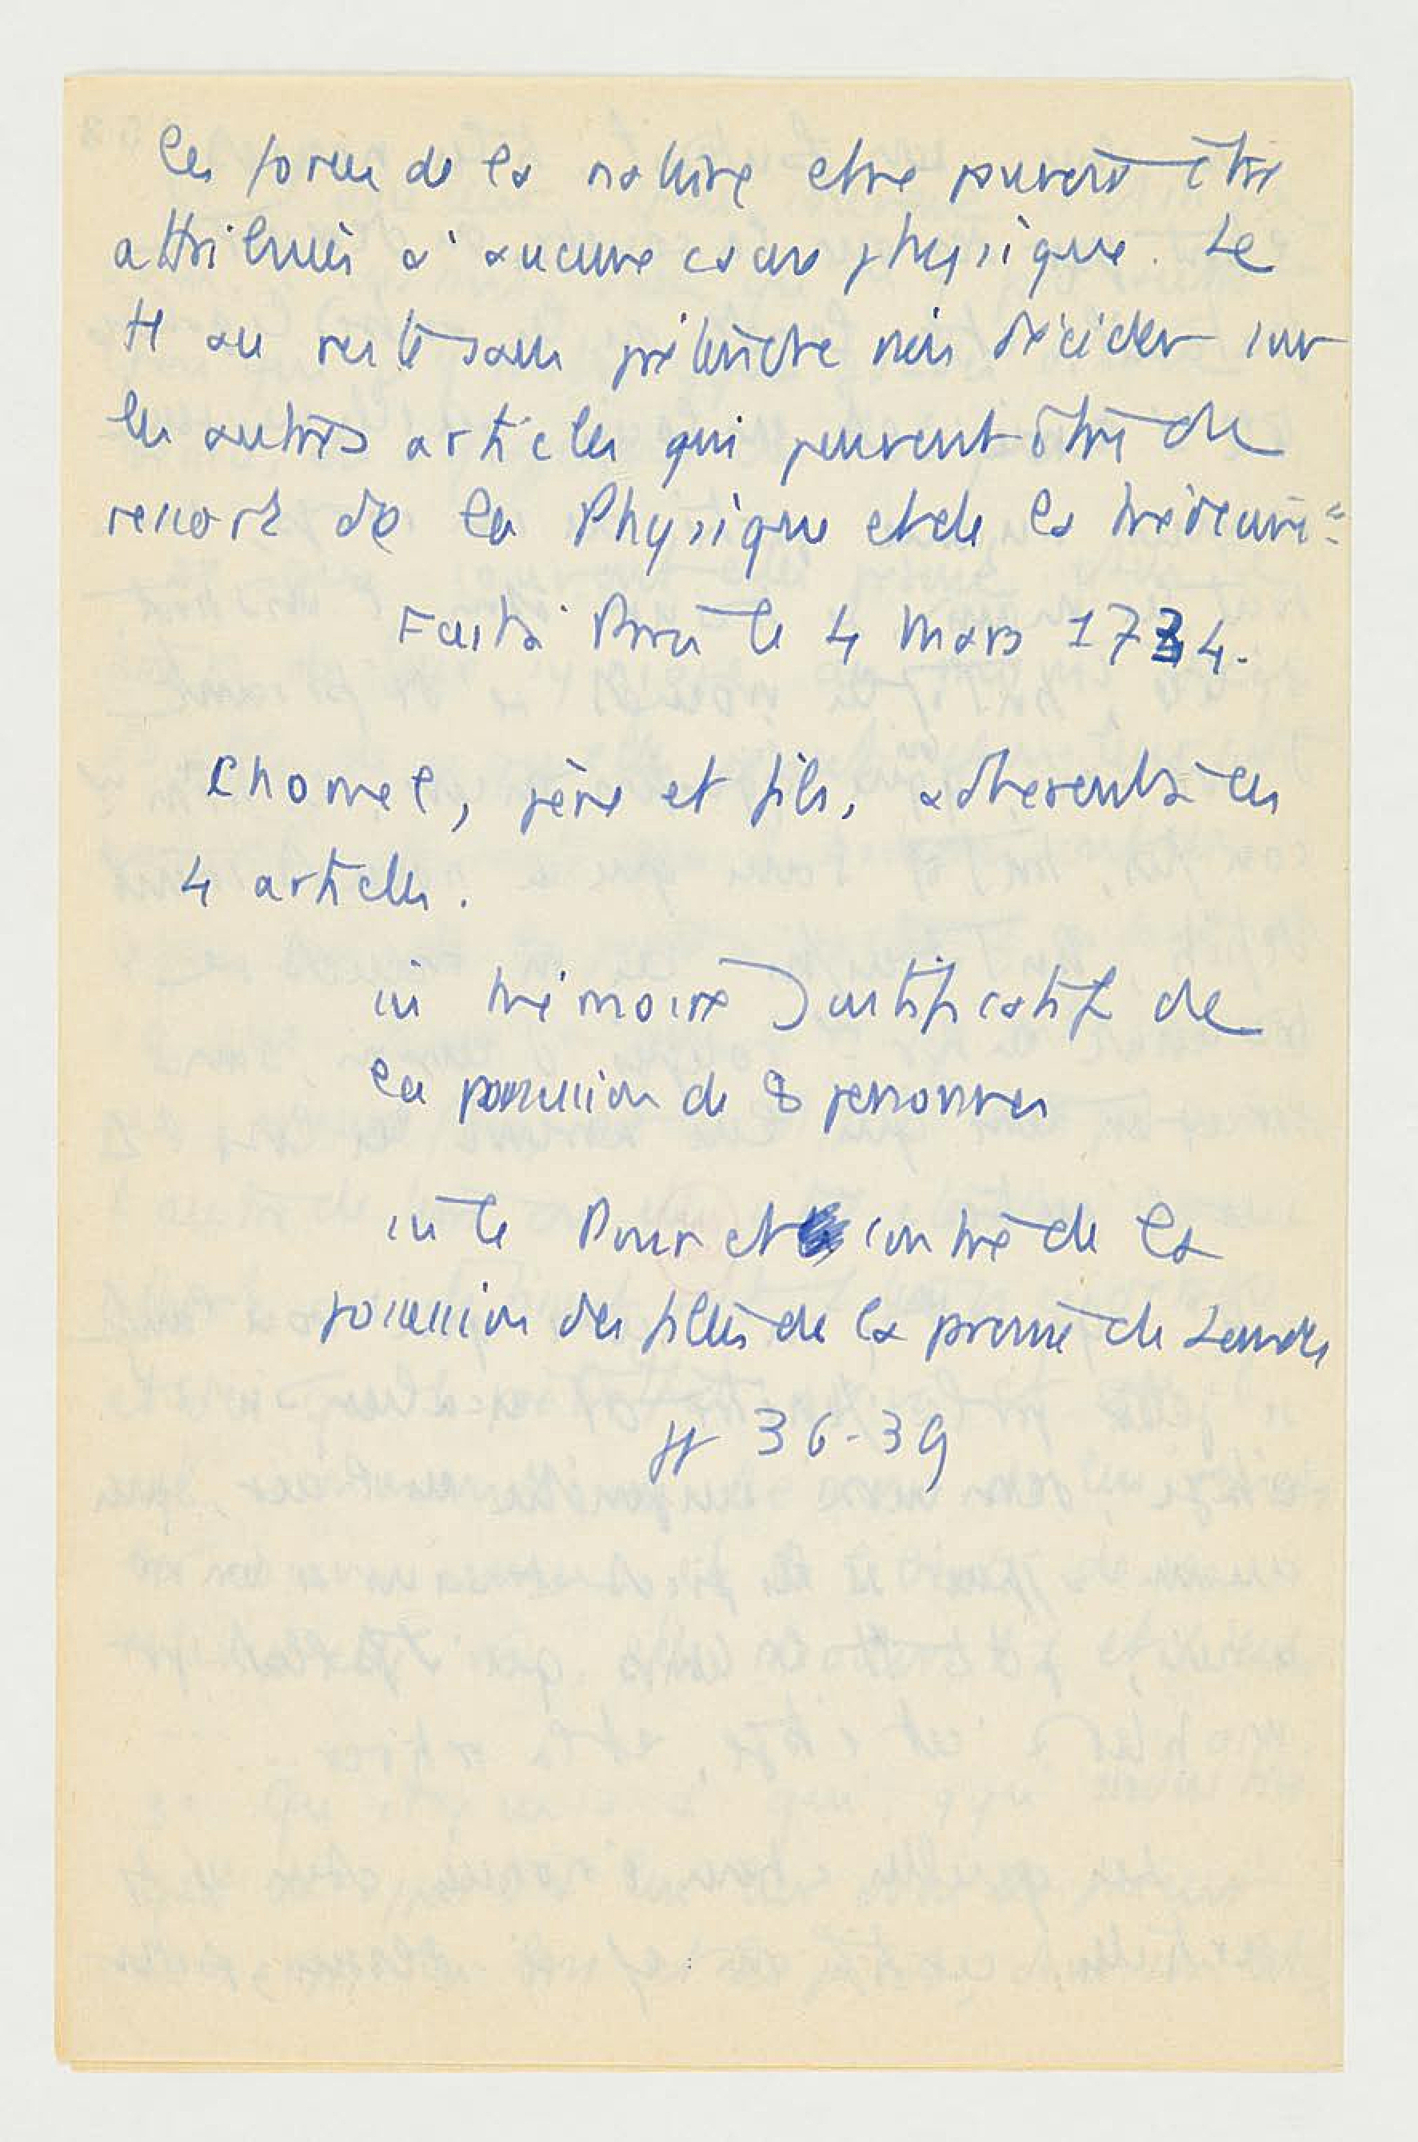 les forces de la nature et ne peuvent être
attribués à aucune cause physique. Le
tt au reste sans prétendre rien décider sur
les autres articles qui peuvent être du
ressort de la Physique et de la Médecine.
Fait à Paris le 4 Mars 1734.
Chomel, père et fils, adhérents à ces
4 articles.
in Mémoire Justificatif de
la possession de 8 personnes
in le Pour et contre de la
possession des filles de la paroisse de Landes
pp 36-39